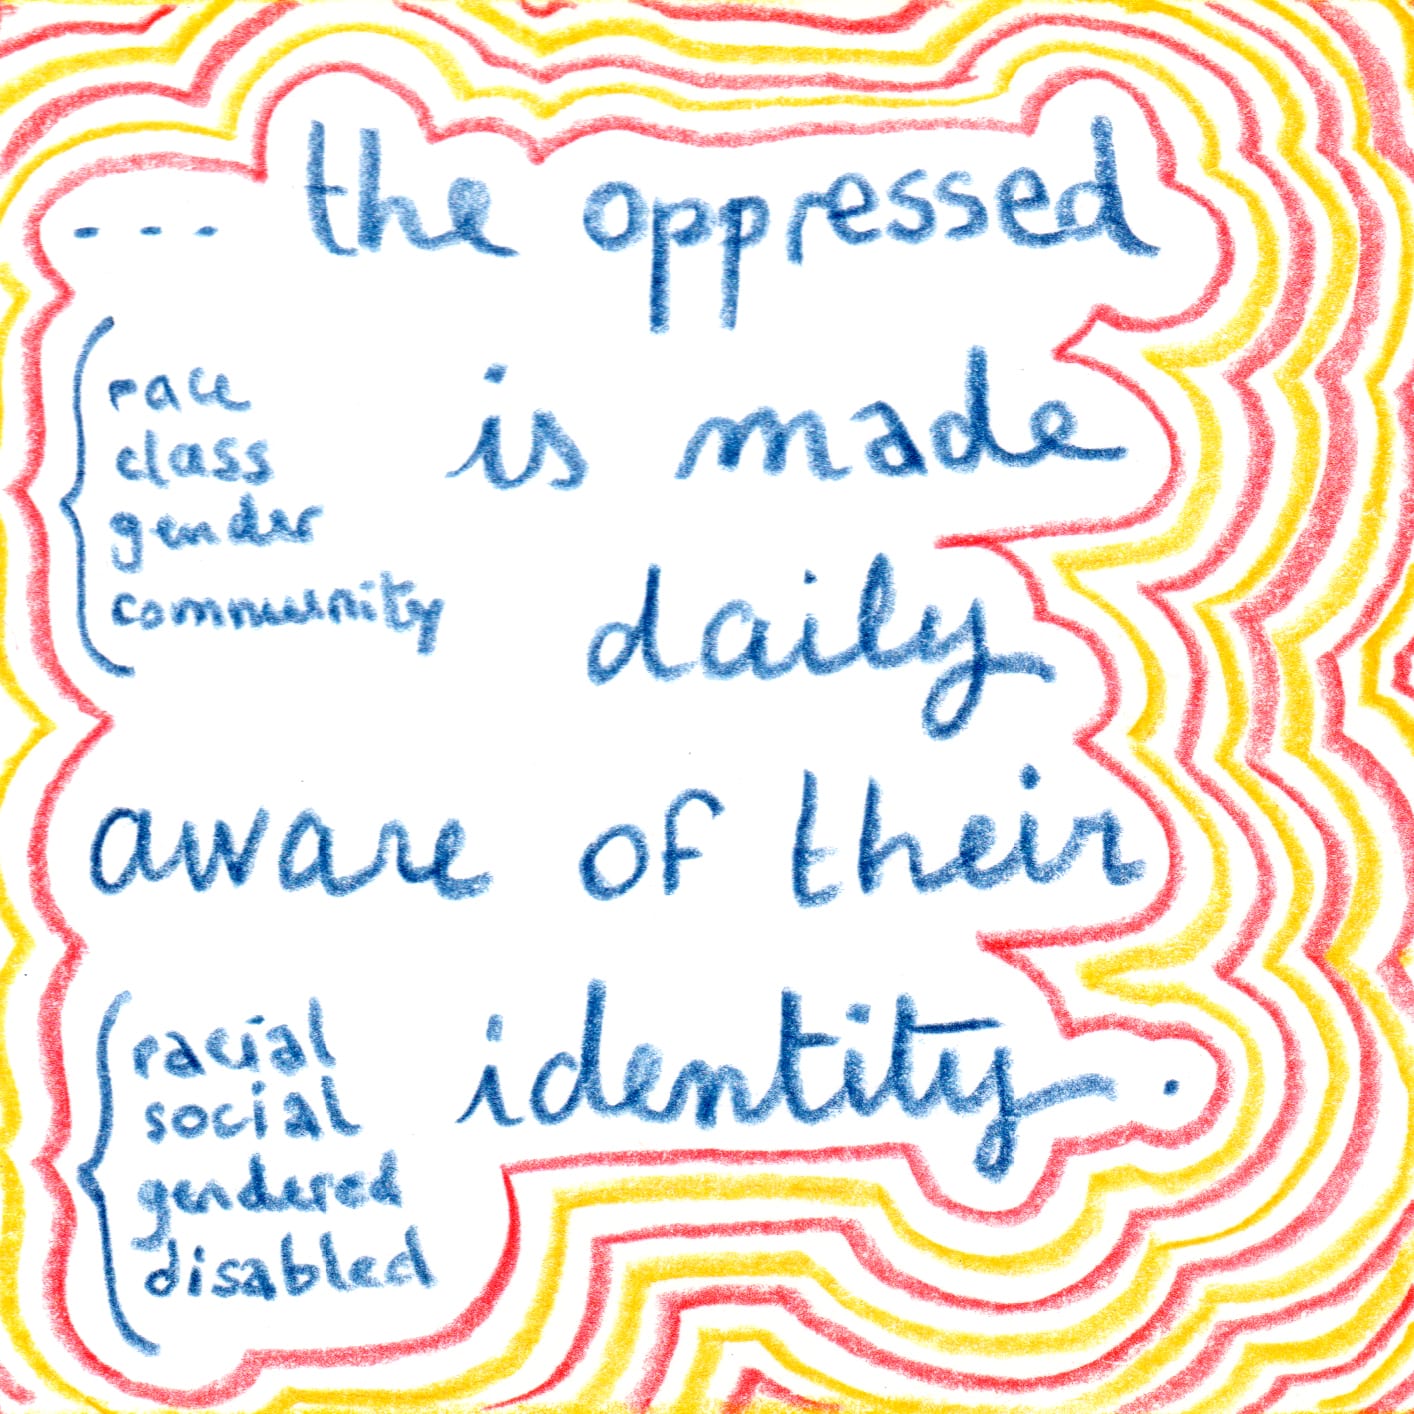 ... the oppressed
race
class
gender
community
is made
daily
aware of their
racial
social
gendered
disabled
identity.